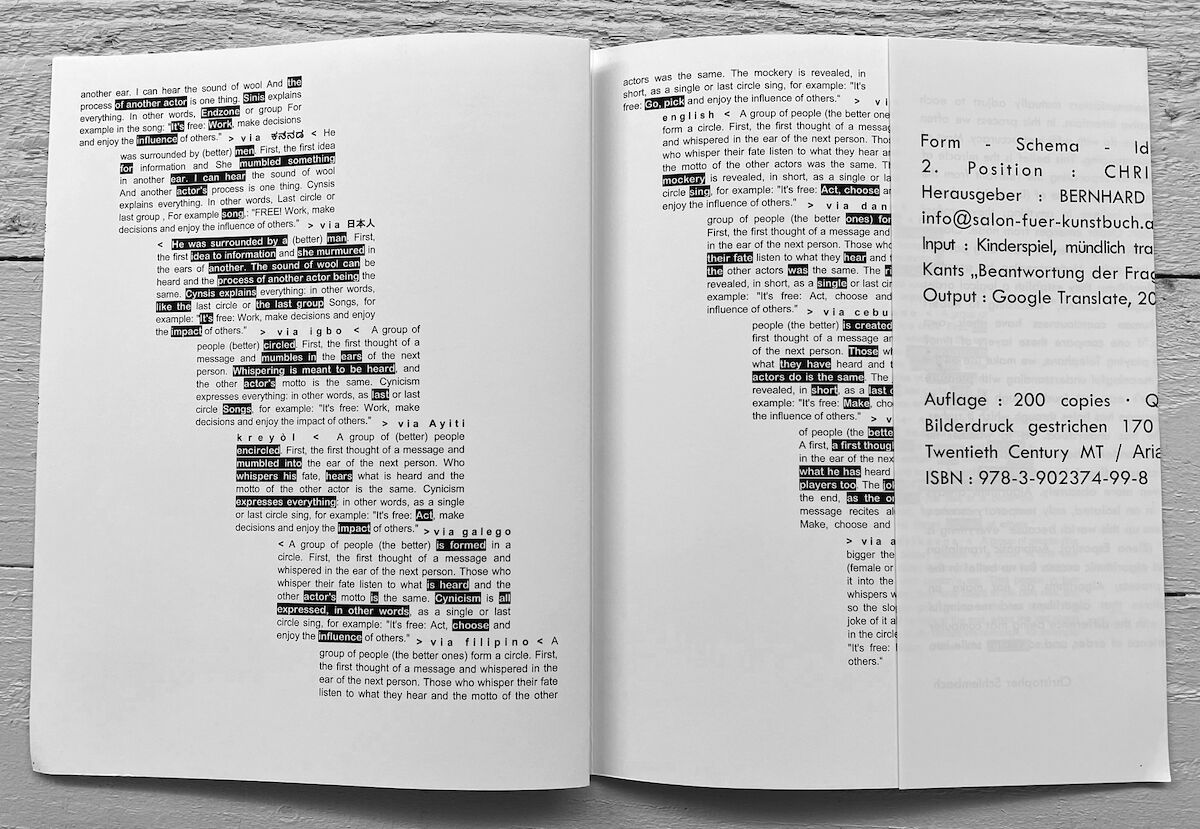 another ear. I can hear the sound of wool And the
process of another actor is one thing. Sinis explains
everything. In other words, Endzone or group For
example in the song: "It's free: Work, make decisions
and enjoy the influence of others." > via ಕನ್ನಡ < He
was surrounded by (better) men. First, the first idea
for information and She mumbled something
in another ear. I can hear the sound of wool
And another actor's process is one thing. Cynsis
explains everything. In other words, Last circle or
last group , For example song,: "FREE! Work, make
decisions and enjoy the influence of others." > via 日本人
< He was surrounded by a (better) man. First,
the first idea to information and she murmured in
the ears of another. The sound of wool can be
heard and the process of another actor being the
same. Cynsis explains everything: in other words,
like the last circle or the last group Songs, for
example: "It's free: Work, make decisions and enjoy
the impact of others." > via igbo < A group of
people (better) circled. First, the first thought of a
message and mumbles in the ears of the next
person. Whispering is meant to be heard, and
the other actor's motto is the same. Cynicism
expresses everything: in other words, as last or last
circle Songs, for example: "It's free: Work, make
decisions and enjoy the impact of others." > via Ayiti
kreyòl < A group of (better) people
encircled. First, the first thought of a message and
mumbled into the ear of the next person. Who
whispers his fate, hears what is heard and the
motto of the other actor is the same. Cynicism
expresses everything: in other words, as a single
or last circle sing, for example: "It's free: Act, make
decisions and enjoy the impact of others." > via galego
< A group of people (the better) is formed in a
circle. First, the first thought of a message and
whispered in the ear of the next person. Those who
whisper their fate listen to what is heard and the
other actor's motto is the same. Cynicism is all
expressed, in other words, as a single or last
circle sing, for example: "It's free: Act, choose and
enjoy the influence of others." > via filipino < A
group of people (the better ones) form a circle. First,
the first thought of a message and whispered in the
ear of the next person. Those who whisper their fate
listen to what they hear and the motto of the other
actors was the same. The mockery is revealed, in
short, as a single or last circle sing, for example: "It's
free: Go, pick and enjoy the influence of others." > vi
english < A group of people (the better one
form a circle. First, the first thought of a messag
and whispered in the ear of the next person. Thos
who whisper their fate listen to what they hear an
the motto of the other actors was the same. Th
mockery is revealed, in short, as a single or la
circle sing, for example: "It's free: Act, choose an
enjoy the influence of others." > via dan
group of people (the better ones) for
First, the first thought of a messag
in the ear of the next person. Those who
their fate listen to what they hear and
the other actors was the same. The ri
revealed, in short, as a single or last cir
example: "It's free: Act, choose and
influence of others." > via cebu
people (the better) is created
the first thought of a message ar
of the next person. Those wh
what they have heard and t
actors do is the same. The
revealed, in short, as a last c
example: "It's free: Make, cho
the influence of others." > v
of people (the bette
A first, a first though
in the ear of the nex
what he has heard
players too. The jo
the end, as the o
message recites al
Make, choose and
> via a
bigger the
(female or
it into the
whispers w
so the slo
joke of it a
in the circle
"It's free:
others."
Form - Schema - Id
2. Position : CHRI
Herausgeber : BERNHARD
info@salon-fuer-kunstbuch.a
Input : Kinderspiel, mündlich tra
Kants „Beantwortung der Frag
Output : Google Translate, 20
Auflage : 200 copies · Q
Bilderdruck gestrichen 170
Twentieth Century MT / Aria
ISBN : 978-3-902374-99-8
Christopher Schlembach